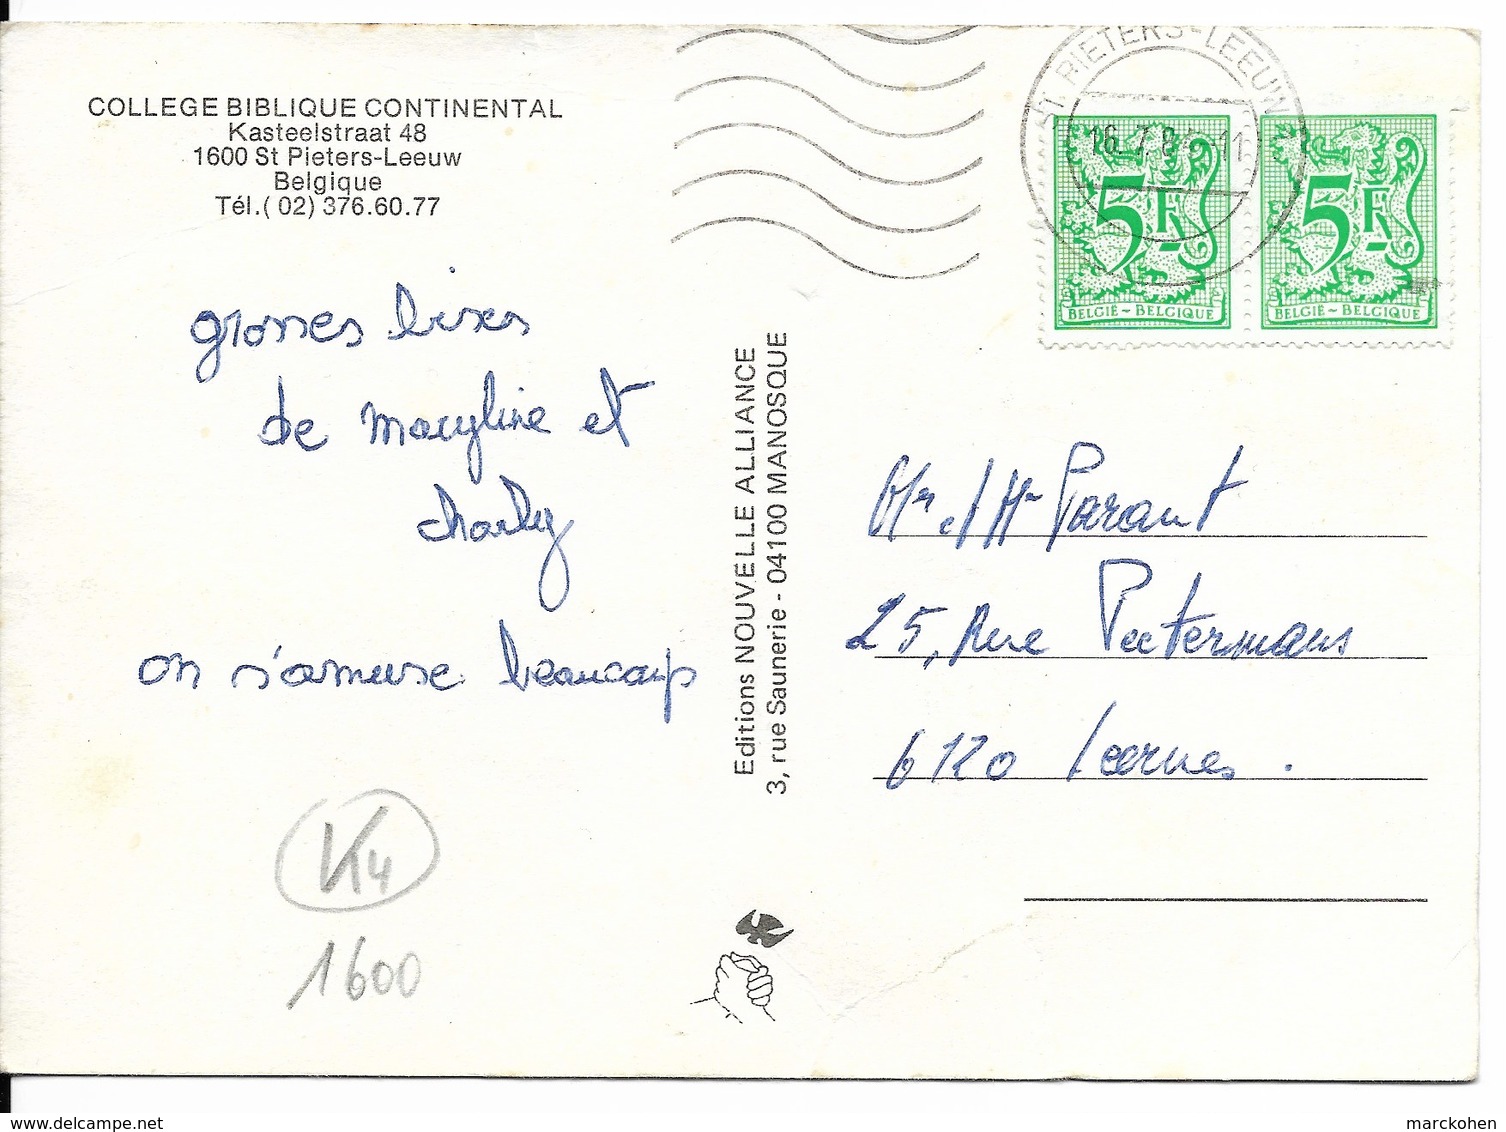 COLLEGE BIBLIQUE CONTINENTAL
Kasteelstraat 48
1600 St Pieters-Leeuw
Belgique
Tél.( 02) 376.60.77
grosses bises
de Maryline et
Charley
on s'amuse beaucoup
K4
1600
Editions NOUVELLE ALLIANCE
3, rue Saunerie - 04100 MANOSQUE
ST. PIETERS-LEEUW
16.7.8 -11
5F
BELGIË ~ BELGIQUE
5F
BELGIË ~ BELGIQUE
Mr et Mme Parant
25, Rue Peetermans
6120 Leernes.
marckohen